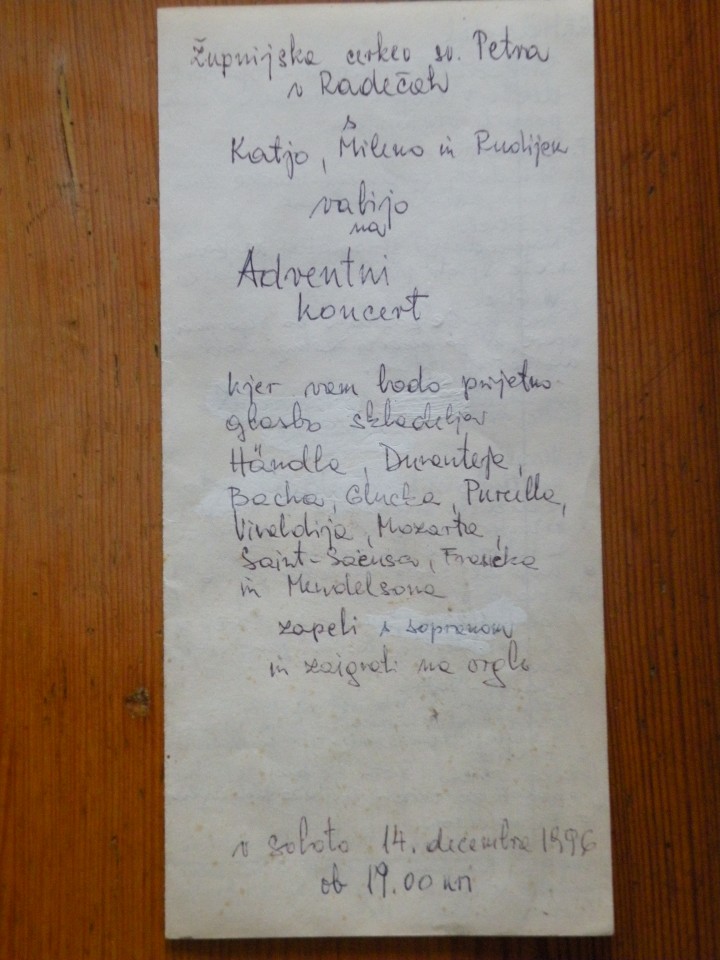 Župnijska cerkev sv. Petra
v Radečah
s
Katjo, Mileno in Rudijem
vabijo
na
Adventni
koncert
kjer vam bodo prijetno
glasbo skladateljev
Händla, Duranteja,
Bacha, Glucka, Purcella,
Vivaldija, Mozarta,
Saint-Saënsa, Francka
in Mendelsona
zapeli s sopranom
in zaigrali na orgle
v soboto 14. decembra 1996
ob 19.00 uri